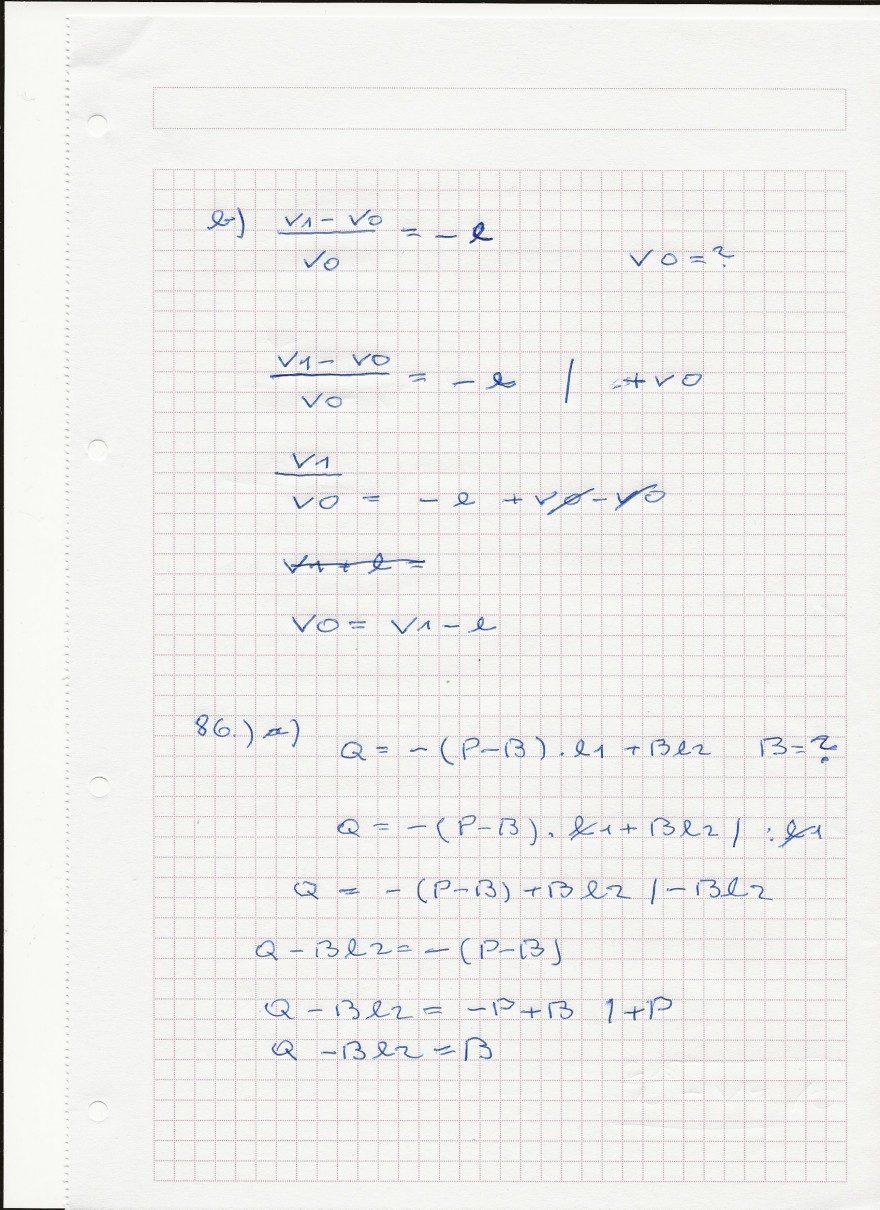 b) (V1 - V0)/V0 = - l
V0 = ?
(V1 - V0)/V0 = - l | + V0
V1/V0 = - l + V0 - V0
V1 + l =
V0 = V1 - l
86.) a) Q = - (P-B) . l1 + Bl2 B = ?
Q = - (P-B) . l1 + Bl2 | : l1
Q = - (P-B) + Bl2 | - Bl2
Q - Bl2 = - (P-B)
Q - Bl2 = -P + B | +P
Q - Bl2 = B